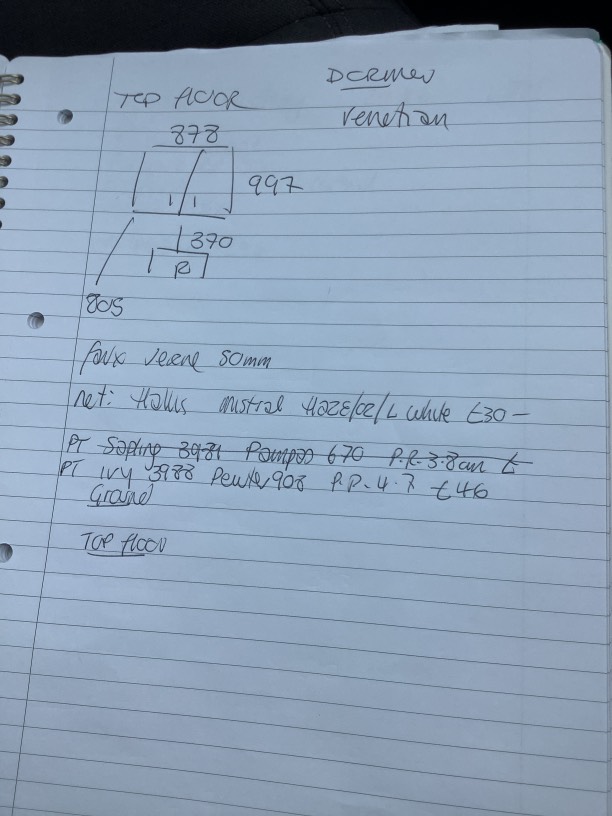 TOP FLOOR
DORMER
Venetian
878
997
390
R
805
faux Veene 50mm
net: Hollis mistral HAZE/02/L white £30 -
PT Sapling 3981 Pampas 670 P.R. 3.8cm £
PT Ivy 3988 Pewter 908 P.P. 4.7 £46
Grand
TOP floor